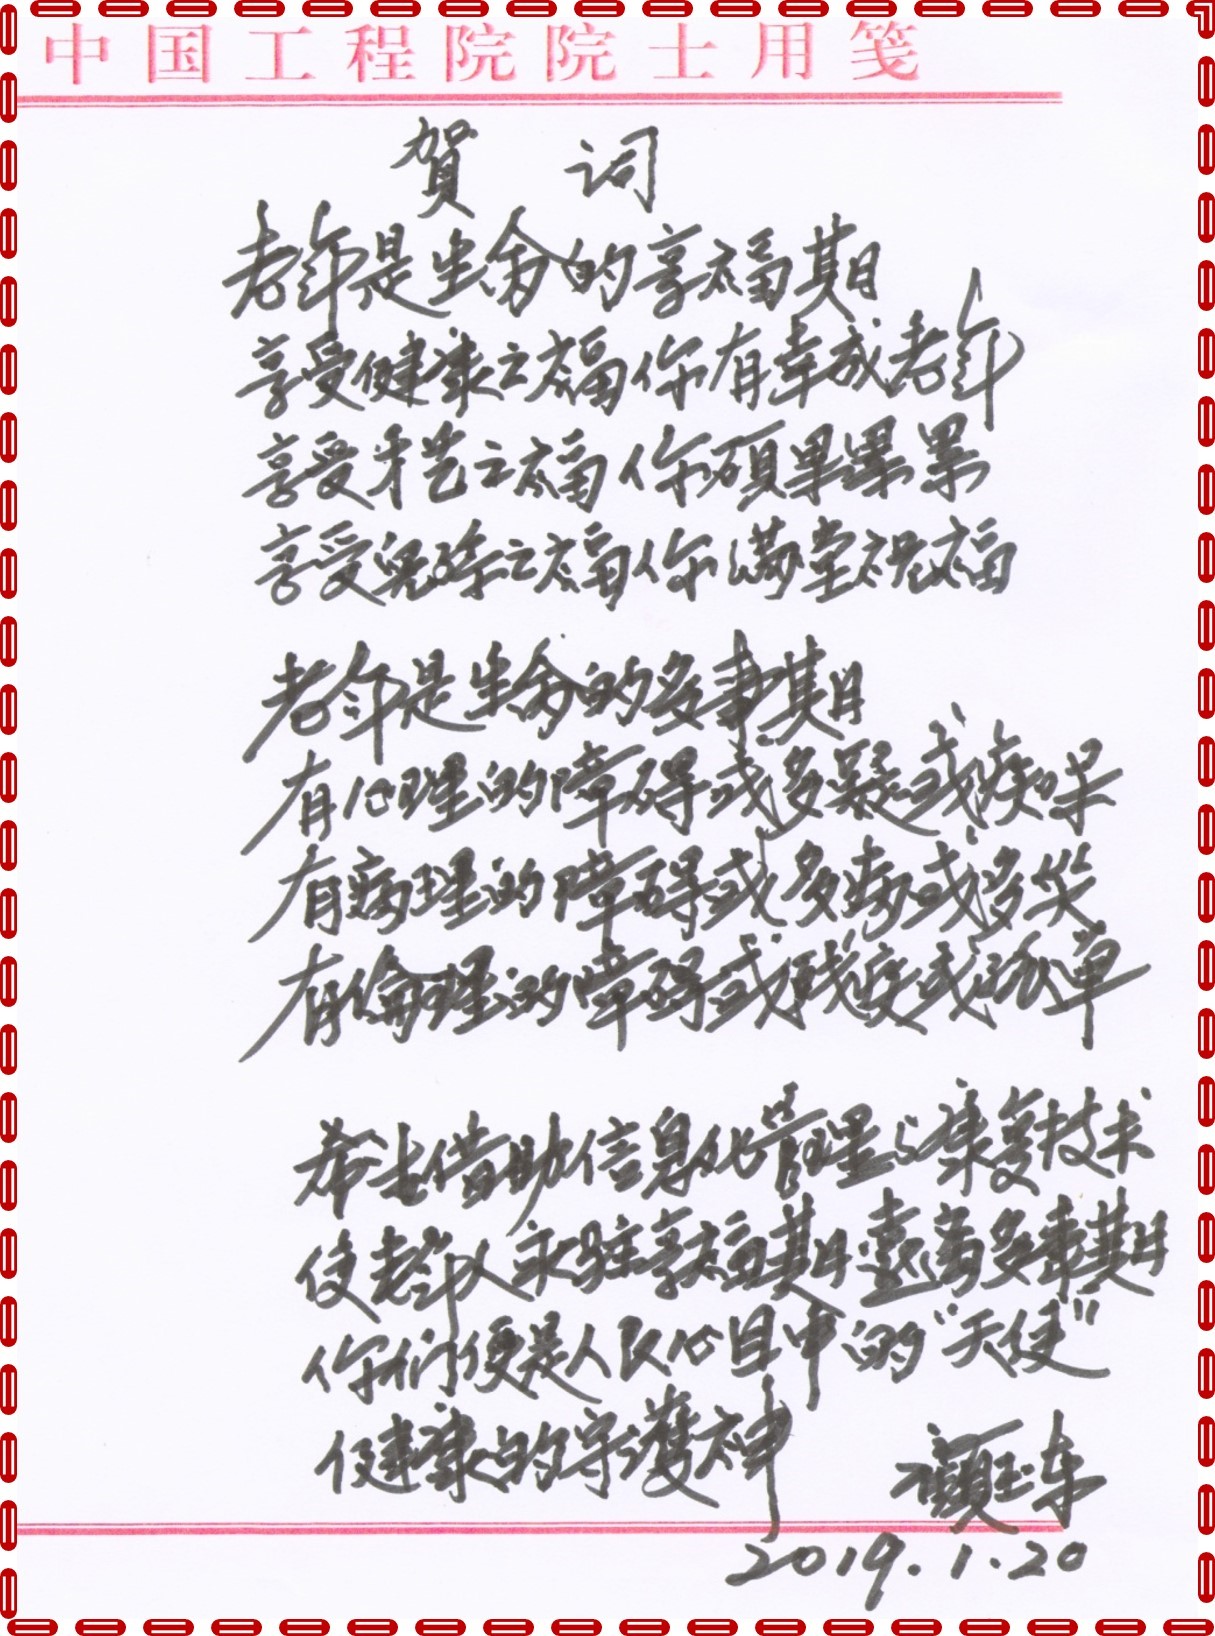 中国工程院院士用笺
賀 词
老年是生命的享福期
享受健康之福你有幸成老年
享受才艺之福你硕果累累
享受儿孙之福你满堂祝福
老年是生命的多事期
有心理的障碍或多疑或痴呆
有病理的障碍或多病或多災
有倫理的障碍或残疾或孤单
希去借助信息化管理与康复技术
使老年人永驻享福期遠离多事期
你们便是人民心目中的“天使”
健康的守護神
顾玉东
2019.1.20